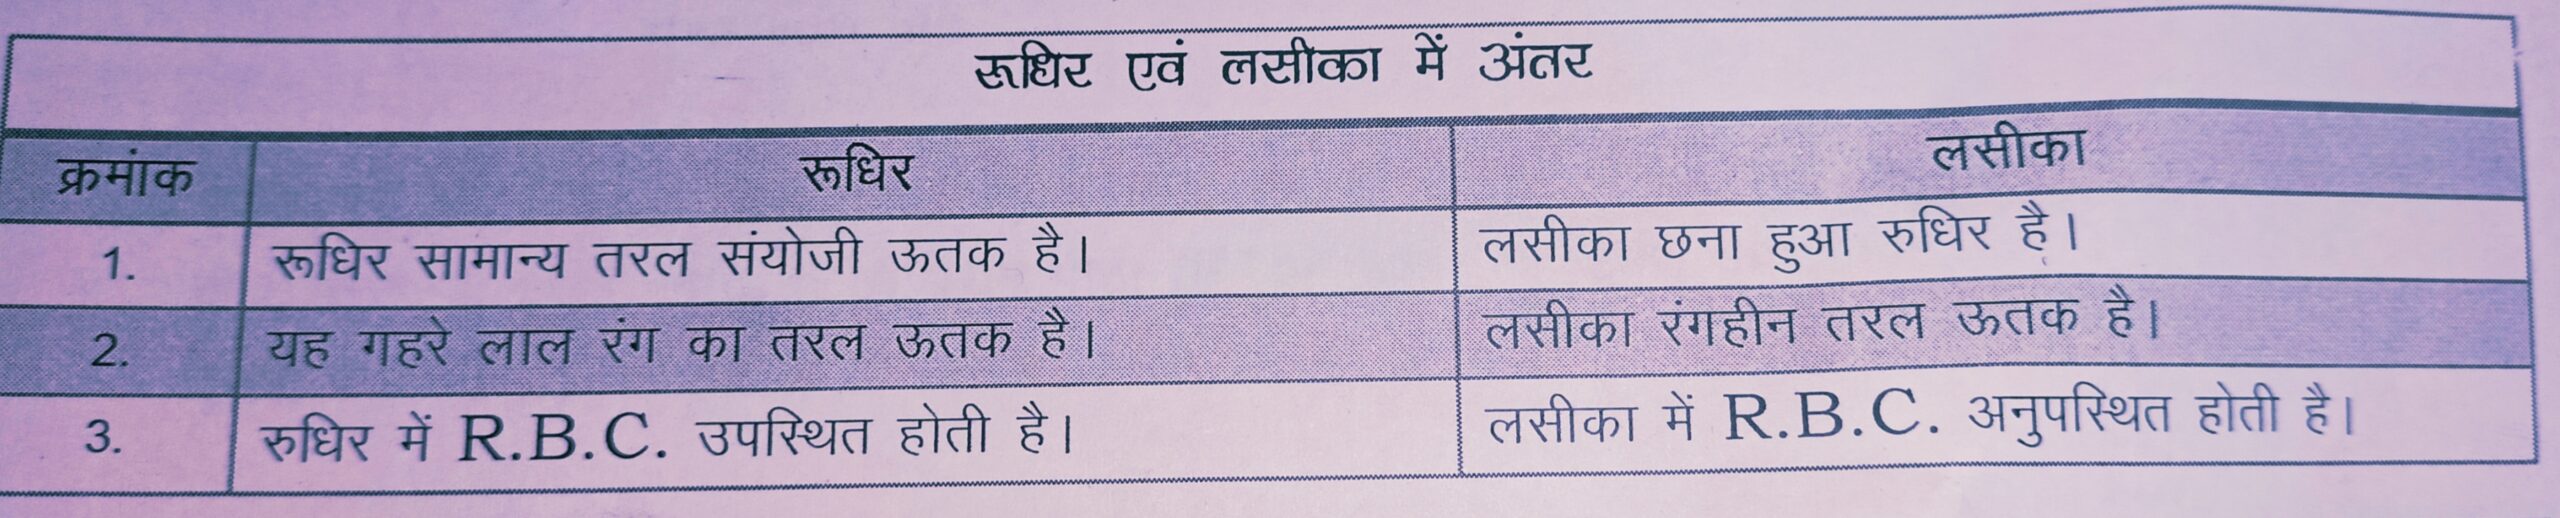 रूधिर एवं लसीका में अंतर
क्रमांक रूधिर लसीका
1. रूधिर सामान्य तरल संयोजी ऊतक है। लसीका छना हुआ रुधिर है।
2. यह गहरे लाल रंग का तरल ऊतक है। लसीका रंगहीन तरल ऊतक है।
3. रुधिर में R.B.C. उपस्थित होती है। लसीका में R.B.C. अनुपस्थित होती है।